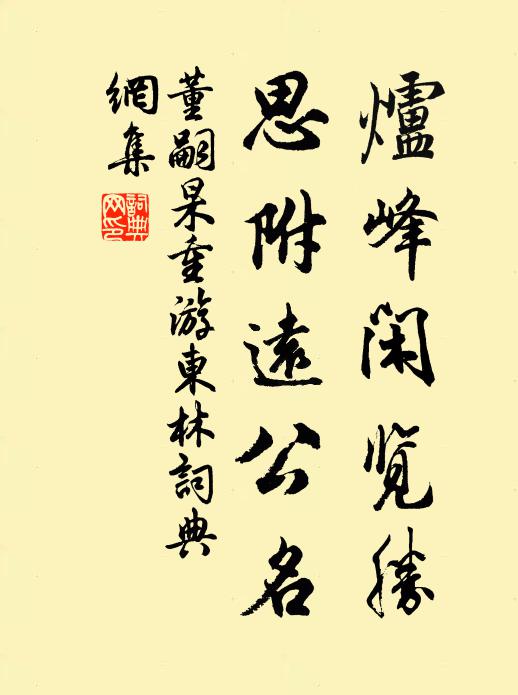 爐峰閑覽勝
思附遠公名
董嗣杲重游東林詞典
網集
詞典网印